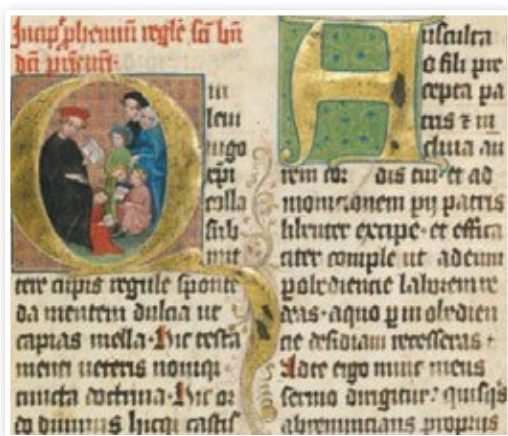 Incip phemiū regle sci
Q
ui
leni
iugo
xpi
colla
sub
mit
tere cupis regule sponte
da mentem dulcia ut
capias mella. Hic testa
menti ueteris nouiqz
cuncta doctrina. Hic or
do diuinus hicqz castis
Ausculta
o fili pre
cepta pa
tris ⁊ in
clina au
rem cor dis tui et ad
monicionem pii patris
libenter excipe et effica
citer comple ut ad eum
p obediencie laborem re
deas. a quo p inobedien
cie desidiam recesseras.
Ad te ergo nunc meus
sermo dirigitur quisqs
abrenuncians propriis